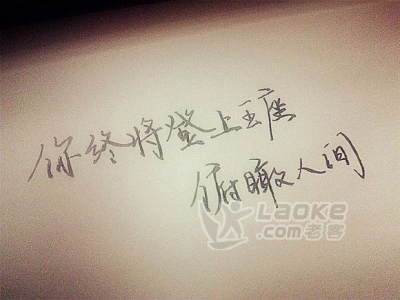 你终将登上王座
俯瞰人间
Laoke
.com老客